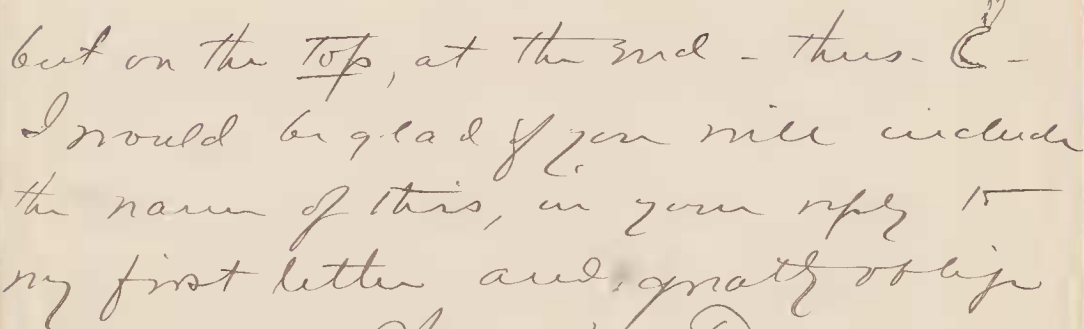 but on the top, at the end - thus -
I would be glad if you will include
the name of this, in your reply to
my first letter and greatly oblige